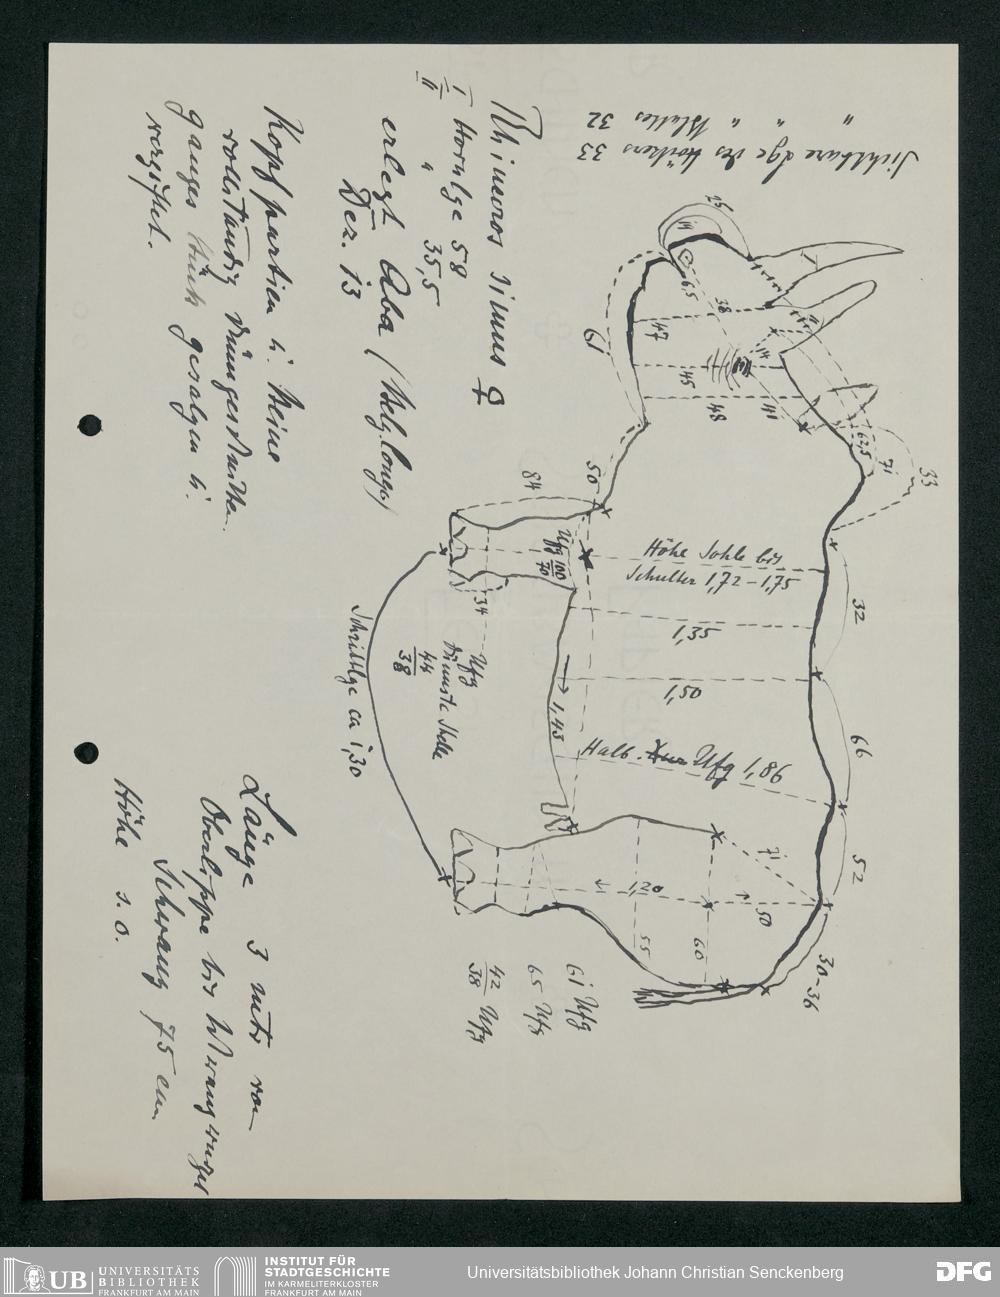 Sichtbare Lge des Höckers 33
" " " Blattes 32
Rhinceros simus ♀
I Hornlge 58
II " 35,5
erlegt Aba (Belg. Congo)
Dez. 13
Kopfpartien u. Beine
vollständig
ganzes Stück gesalzen u.
vergiftet.
Länge 3 mtr von
Oberlippe bis Schwanzwurzel
Schwanz 75 cm
Höhe s. o.
Höhe Sohle bis
Schulter 1,72 – 1,75
1,35
1,50
1,43
Halb. Ufg 1,86
Ufg 100
70
Ufg
dünnste Stelle
44
38
Schrittlge ca 1,30
61 Ufg
65 Ufg
42
38 Ufg
I
II
25
65
38
47
45
48
14
41
61
62,5
71
33
50
84
34
32
66
52
30-36
71
50
1,20
55
60